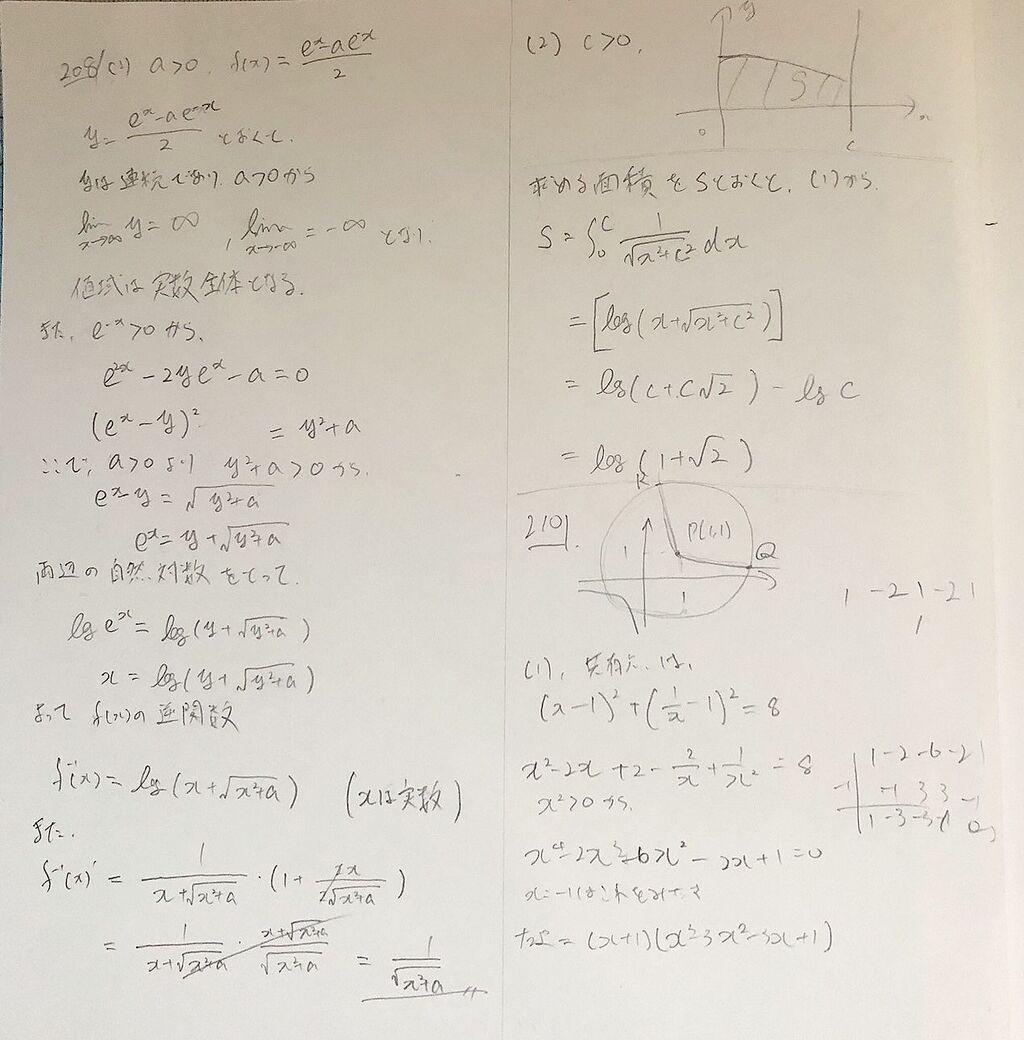 208/(1) a>0. f(x) = (e^x - ae^-x)/2
y = (e^x - ae^-x)/2 とおくと.
yは連続であり. a>0から
lim x→∞ y = ∞ , lim x→-∞ = -∞ となり.
値域は実数全体となる.
また, e^-x>0 から,
e^2x - 2ye^x - a = 0
(e^x - y)^2 = y^2+a
ここで, a>0より y^2+a>0から.
e^x - y = √(y^2+a)
e^x = y + √(y^2+a)
両辺の自然対数をとって.
log e^x = log(y + √(y^2+a))
x = log(y + √(y^2+a))
よって f(x)の逆関数
f^-1(x) = log(x + √(x^2+a)) (xは実数)
また.
f^-1(x)' = 1/(x+√(x^2+a)) ・ (1 + 2x/(2√(x^2+a)))
= 1/(x+√(x^2+a)) ・ (x+√(x^2+a))/√(x^2+a) = 1/√(x^2+a) 〃
(2) c>0.
y
S
o c x
求める面積をSとおくと, (1)から.
S = ∫0^c 1/√(x^2+c^2) dx
= [log(x+√(x^2+c^2))]
= log(c+c√2) - log c
= log(1+√2)
210).
R
P(1,1)
Q
1
1
1 -2 1 -2 1
1
(1), 共有点は,
(x-1)^2 + (1/x - 1)^2 = 8
x^2 - 2x + 2 - 2/x + 1/x^2 = 8
x^2>0から.
x^4 - 2x^3 - 6x^2 - 2x + 1 = 0
x=-1はこれをみたす
左辺 = (x+1)(x^3 - 3x^2 - 3x + 1)
1 -2 -6 -2 1
-1 -1 3 3 -1
1 -3 -3 1 0,